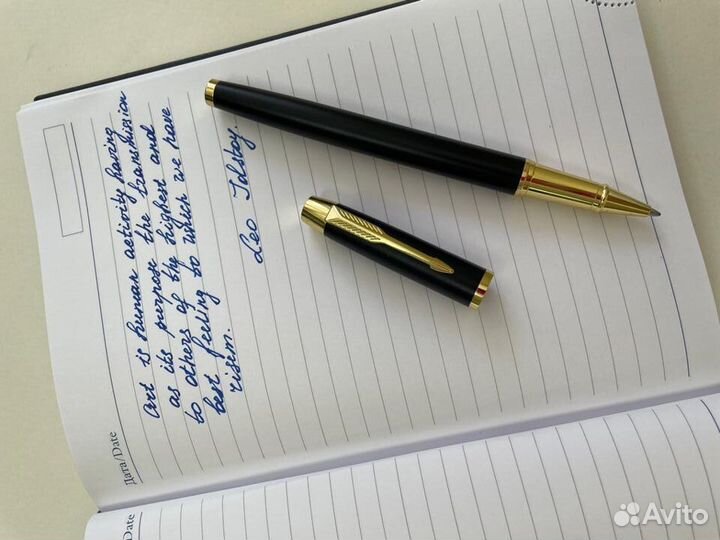 Дата/Date
Art is human activity having
as its purpose the transmission
to others of the highest and
best feeling to which we have
risem.
Leo Tolstoy
Date
Avito